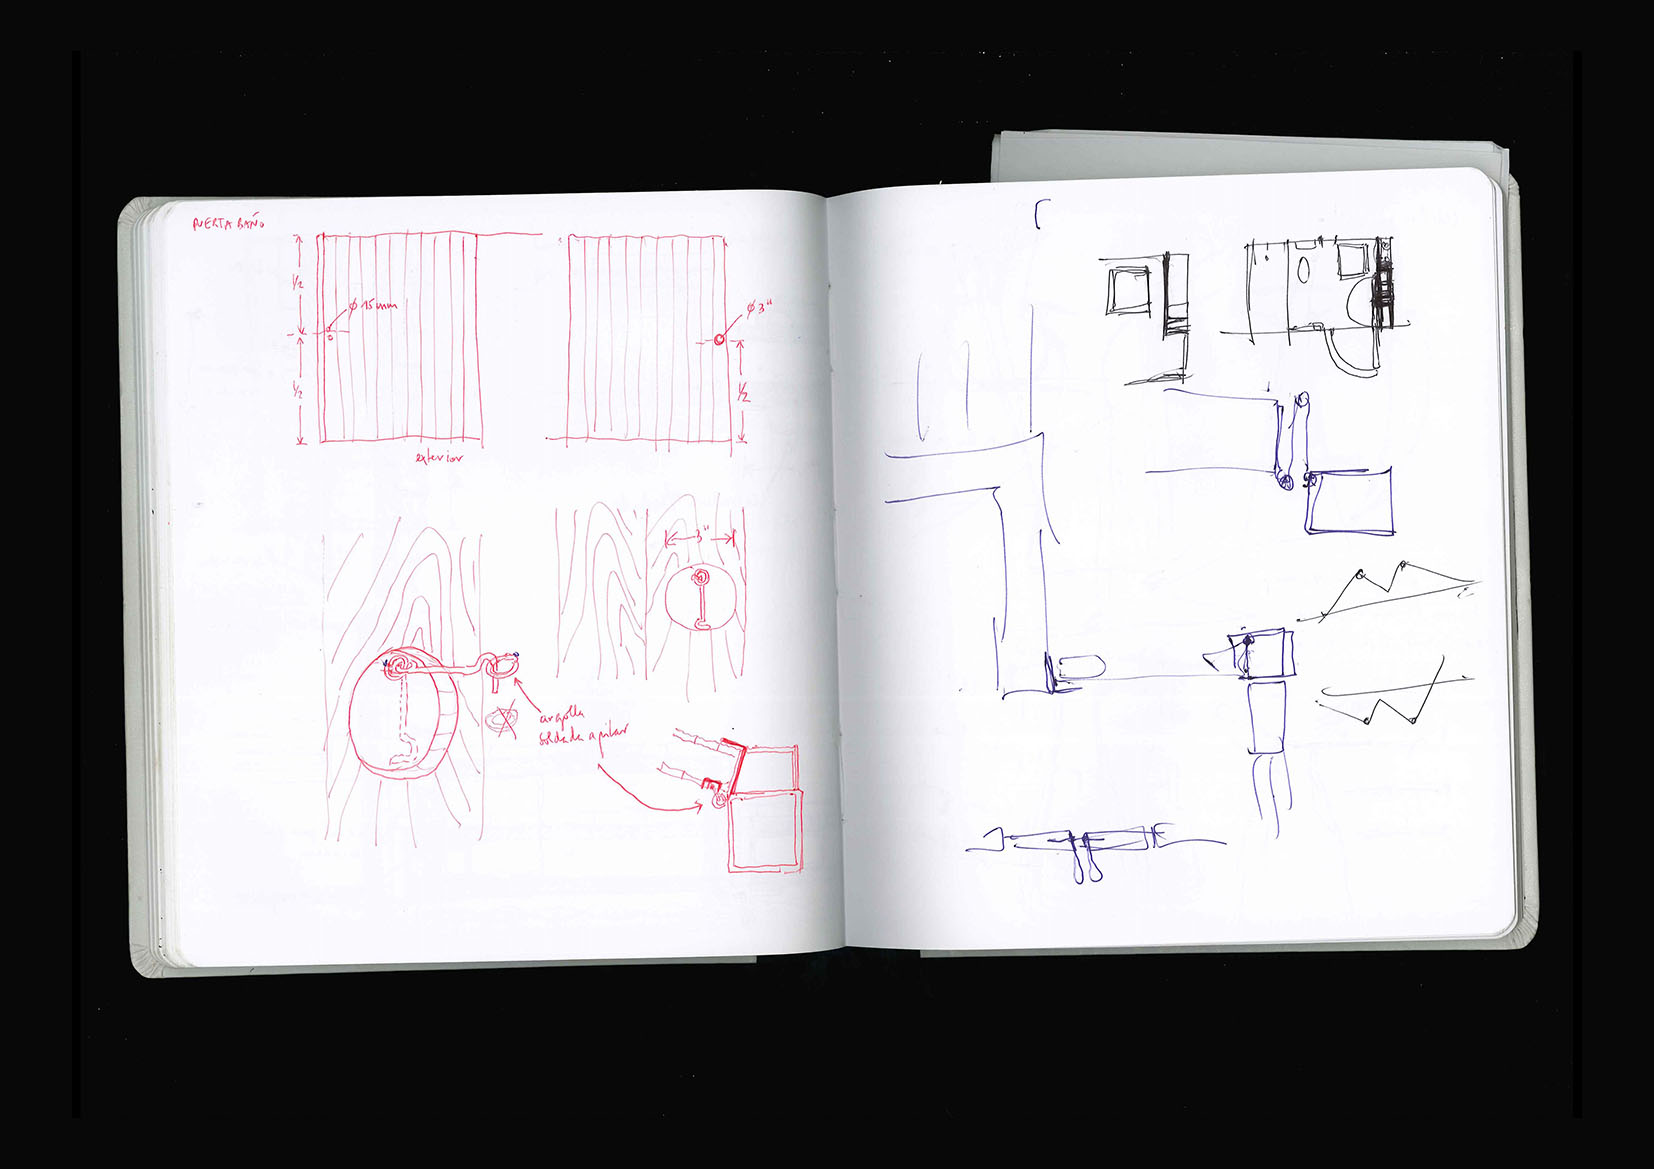 PUERTA BAÑO
1/2
ϕ 15mm
1/2
exterior
ϕ 3"
1/2
3"
argolla
soldada a pilar